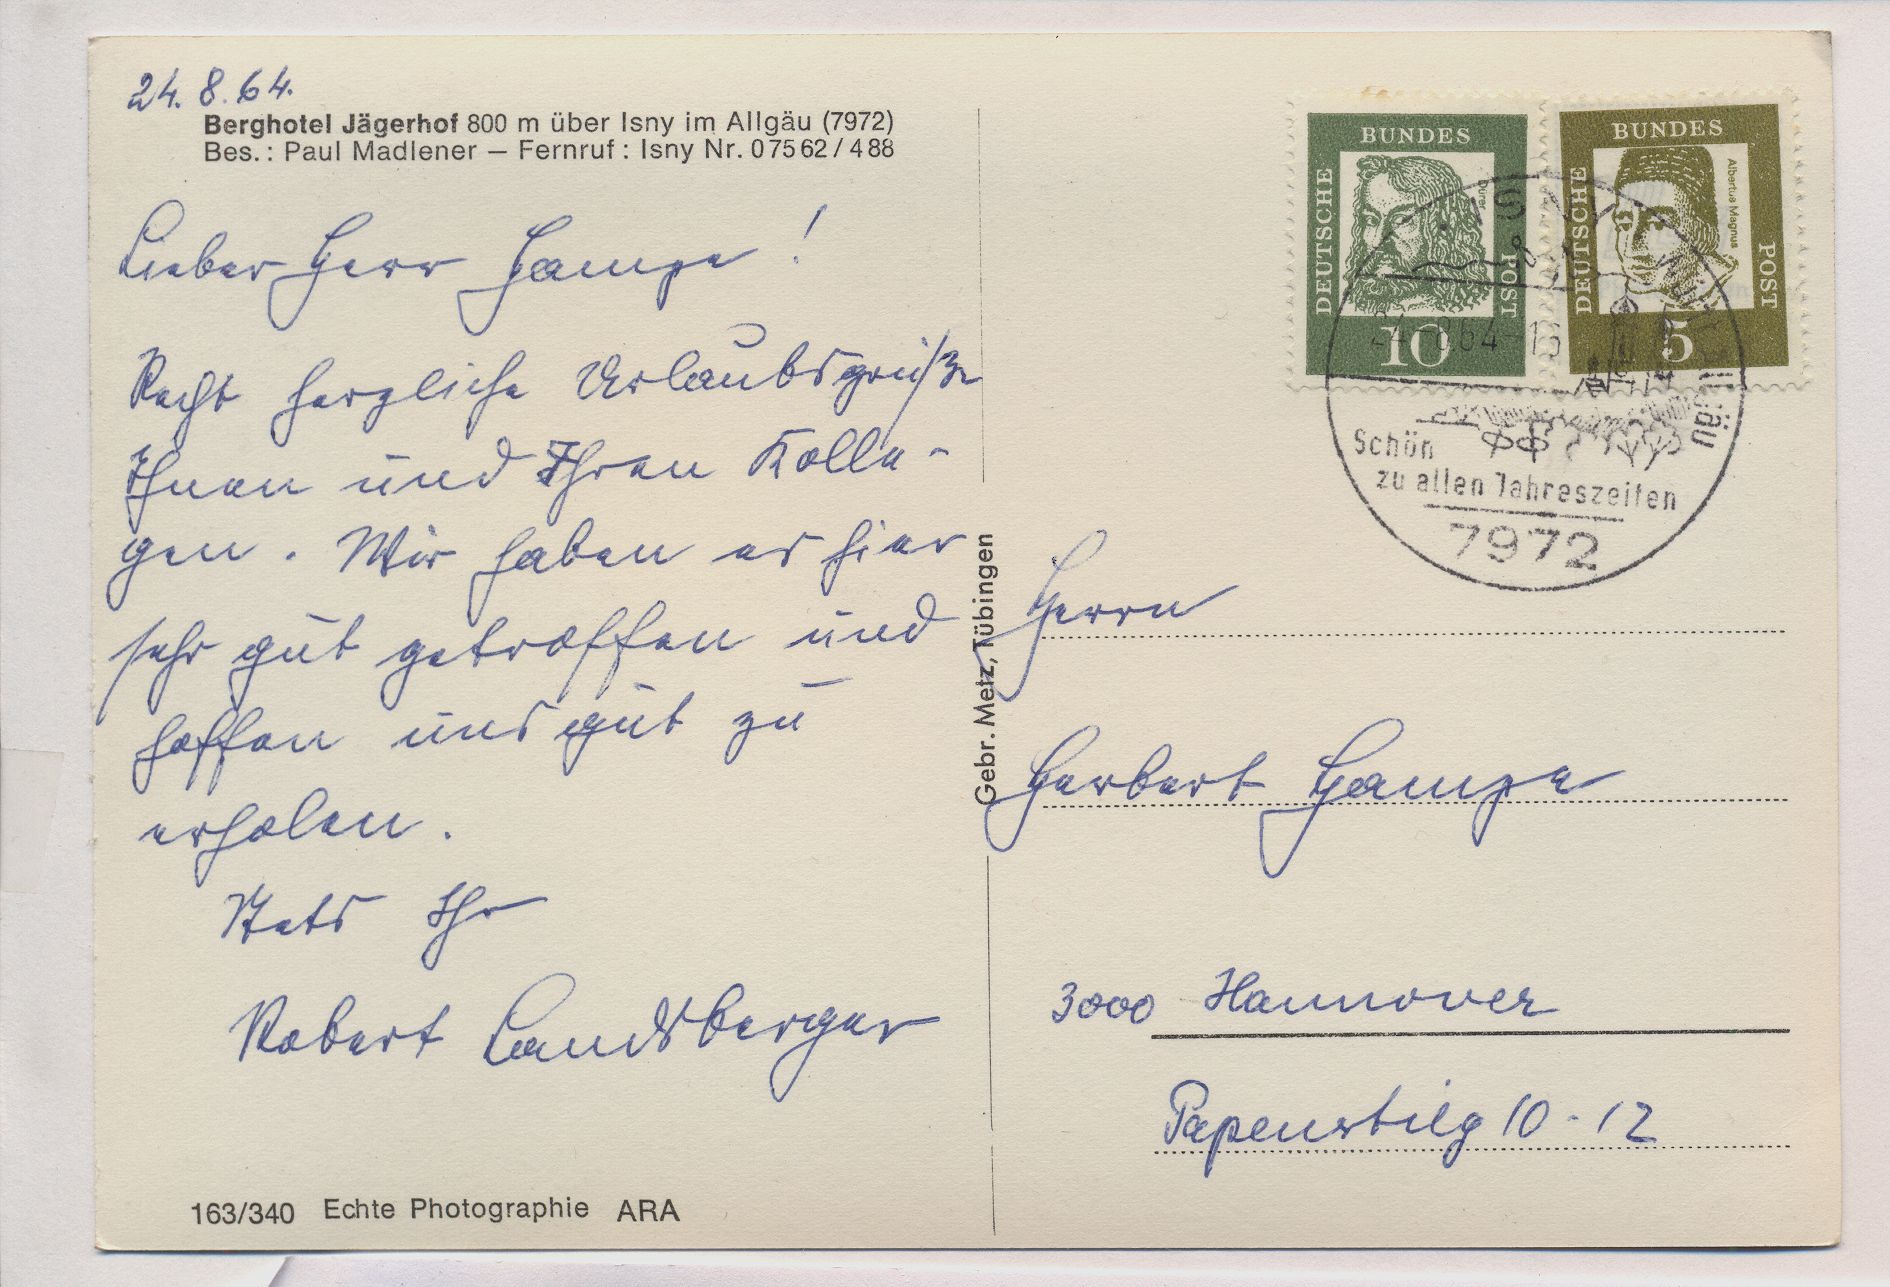 24. 8. 64.
Berghotel Jägerhof 800 m über Isny im Allgäu (7972)
Bes.: Paul Madlener — Fernruf: Isny Nr. 07562/488
Lieber Herr Hampe!
Recht herzliche Urlaubsgrüße
Ihnen und Ihren Kolle-
gen. Wir haben es hier
sehr gut getroffen und
hoffen uns gut zu
erholen.
Stets Ihr
Robert Landsberger
163/340 Echte Photographie ARA
Gebr. Metz, Tübingen
DEUTSCHE BUNDES POST
Dürer
10
DEUTSCHE BUNDES POST
Albertus Magnus
5
ISNY
24-8.64-16
Schön
zu allen Jahreszeiten
7972
Herrn
Herbert Hampe
3000 Hannover
Papenstieg 10-12